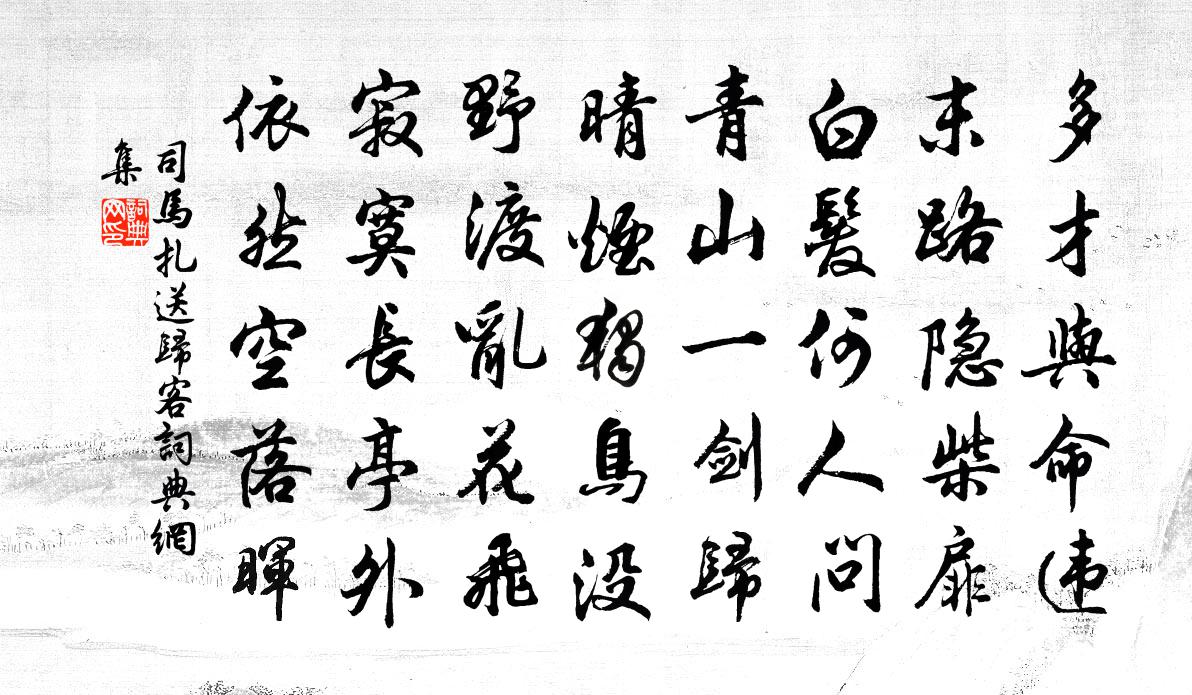 多才與命违
末路隐柴扉
白髮何人问
青山一剑歸
晴煙獨鳥没
野渡亂花飛
寂寞長亭外
依然空落暉
司馬扎送歸客詞典網
集
詞典
网印